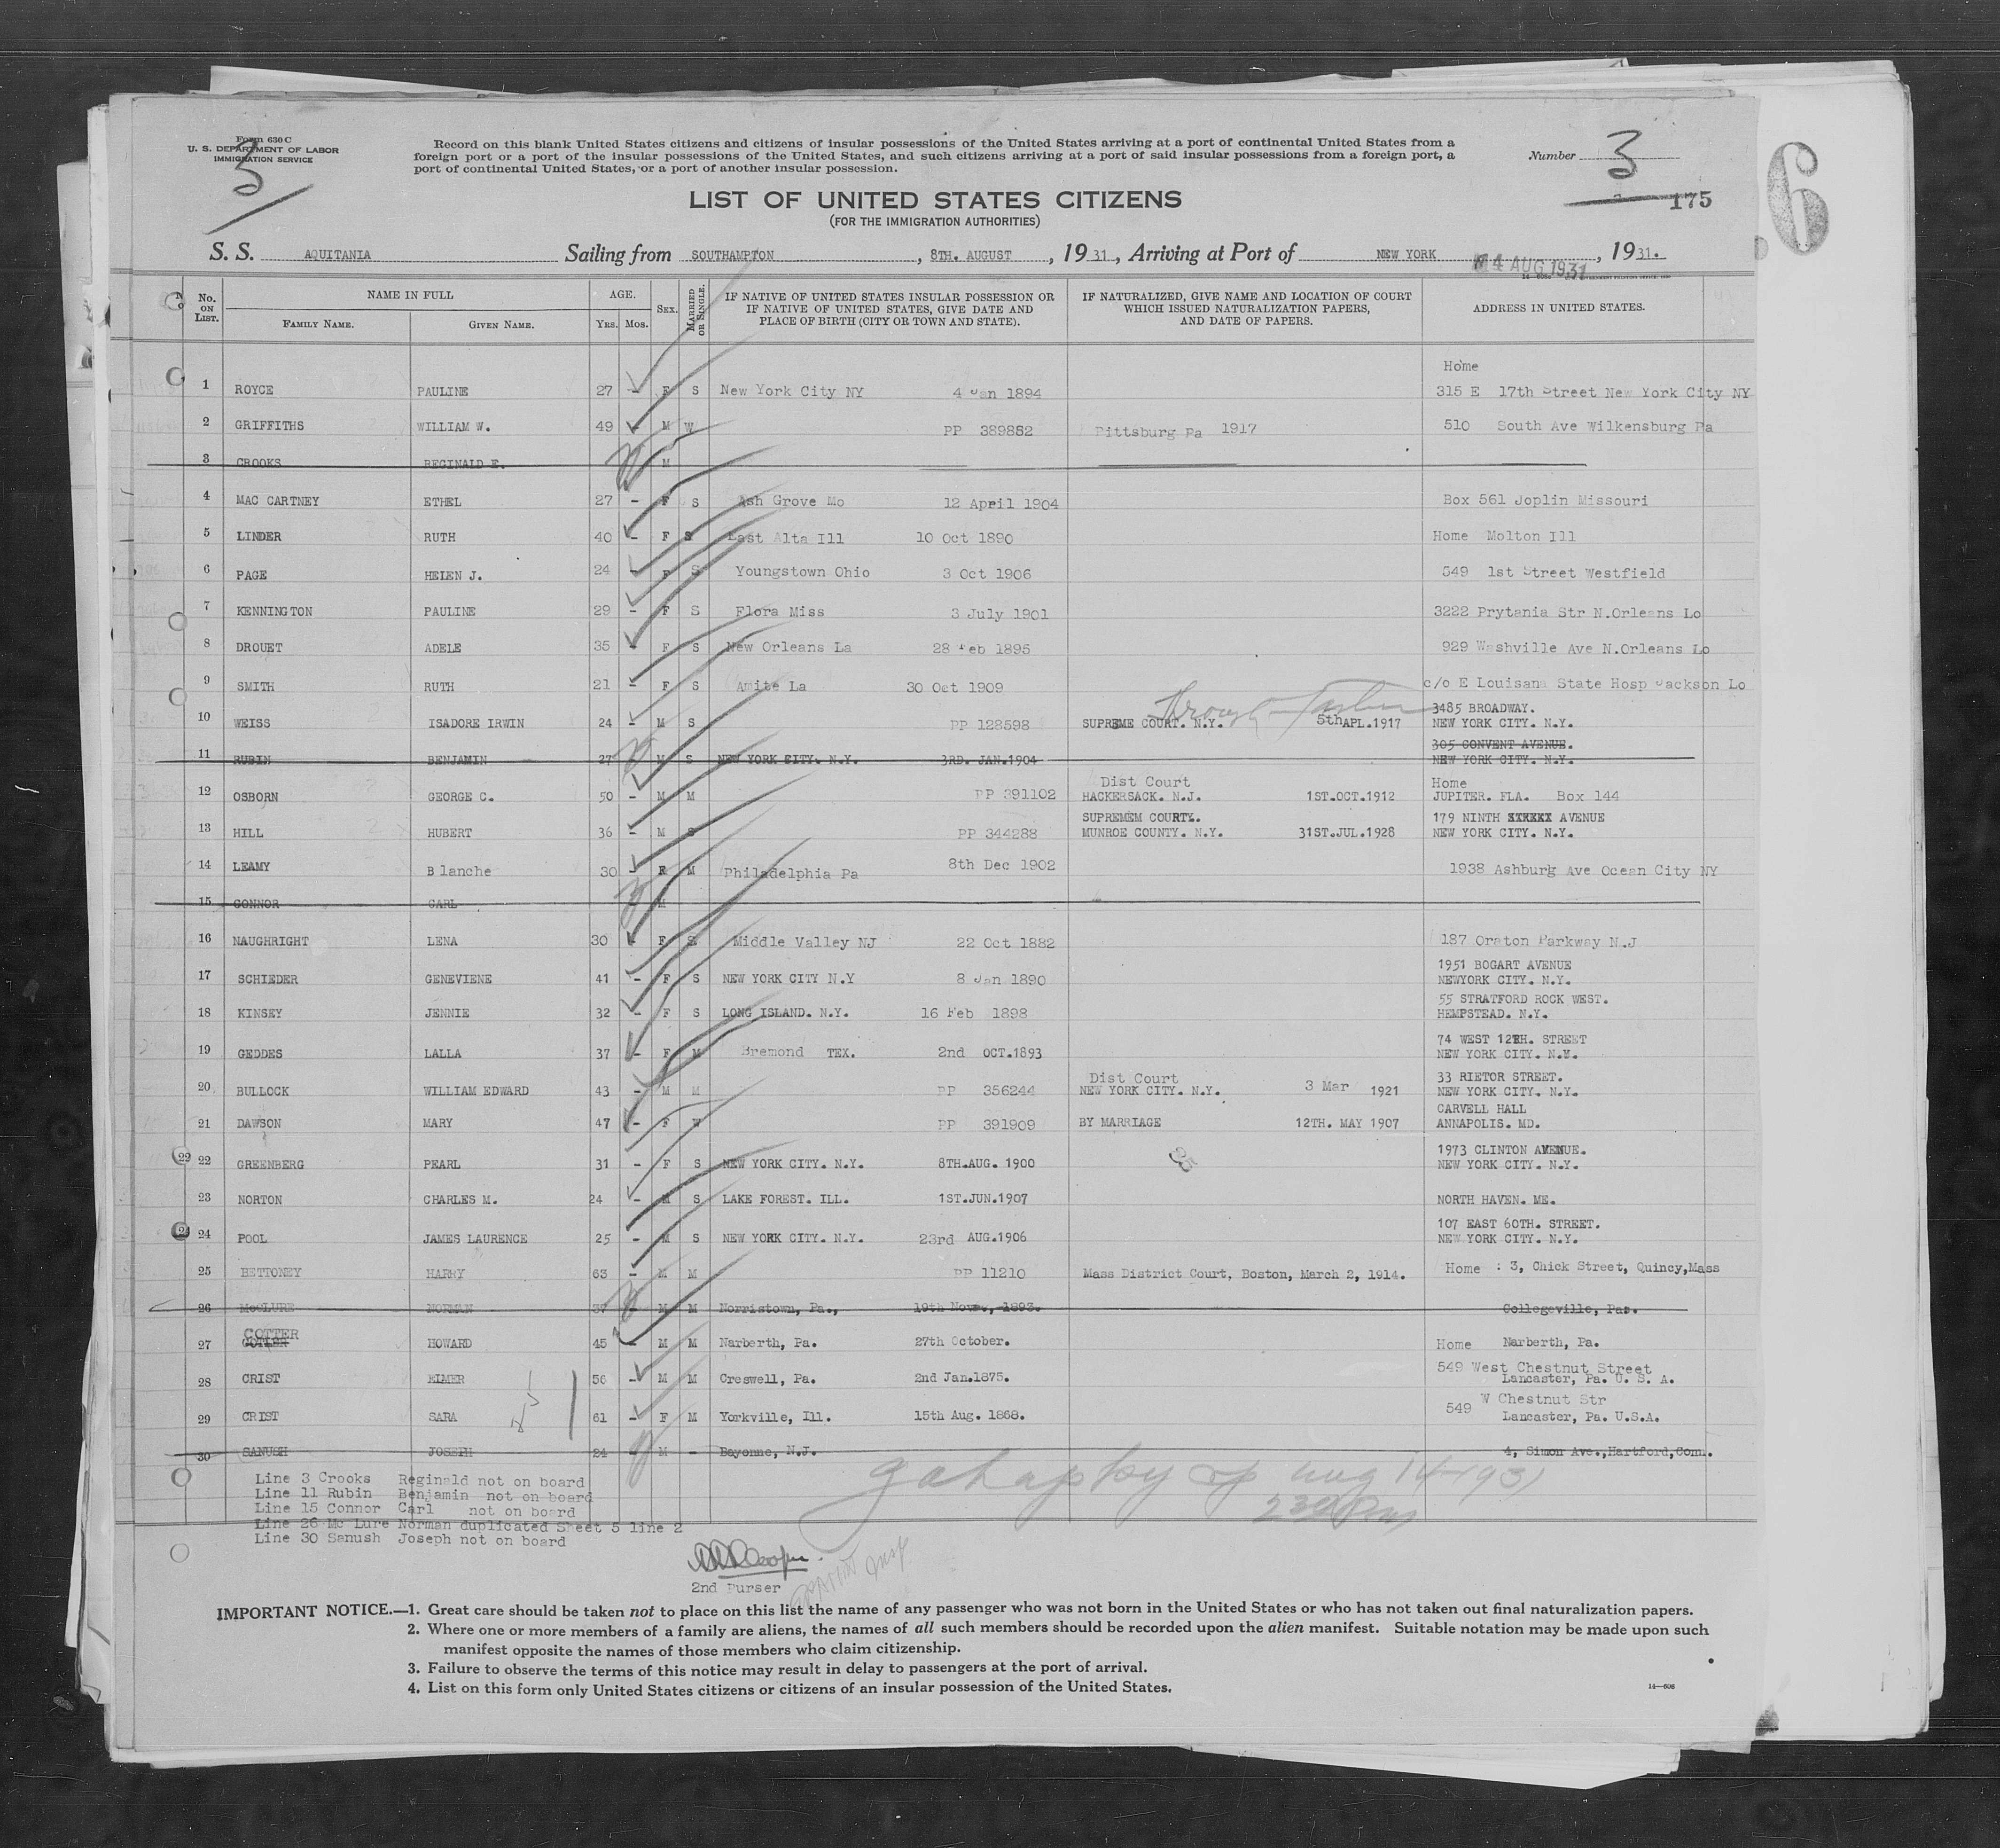 Form 630 C
U. S. DEPARTMENT OF LABOR
IMMIGRATION SERVICE
3
Record on this blank United States citizens and citizens of insular possessions of the United States arriving at a port of continental United States from a
foreign port or a port of the insular possessions of the United States, and such citizens arriving at a port of said insular possessions from a foreign port, a
port of continental United States, or a port of another insular possession.
Number 3
175
6
LIST OF UNITED STATES CITIZENS
(FOR THE IMMIGRATION AUTHORITIES)
S. S. AQUITANIA Sailing from SOUTHAMPTON, 8TH. AUGUST, 1931, Arriving at Port of NEW YORK 14 AUG 1931, 1931.
No. ON LIST. NAME IN FULL AGE. SEX. MARRIED OR SINGLE. IF NATIVE OF UNITED STATES INSULAR POSSESSION OR IF NATIVE OF UNITED STATES, GIVE DATE AND PLACE OF BIRTH (CITY OR TOWN AND STATE). IF NATURALIZED, GIVE NAME AND LOCATION OF COURT WHICH ISSUED NATURALIZATION PAPERS, AND DATE OF PAPERS. ADDRESS IN UNITED STATES.
FAMILY NAME. GIVEN NAME. YRS. MOS.
Home
1 ROYCE PAULINE 27 - F S New York City NY 4 Jan 1894 315 E 17th Street New York City NY
2 GRIFFITHS WILLIAM W. 49 - M W PP 389882 Pittsburg Pa 1917 510 South Ave Wilkensburg Pa
3 CROOKS REGINALD E. M
4 MAC CARTNEY ETHEL 27 - F S Ash Grove Mo 12 April 1904 Box 561 Joplin Missouri
5 LINDER RUTH 40 - F S East Alta Ill 10 Oct 1890 Home Molton Ill
6 PAGE HELEN J. 24 - F S Youngstown Ohio 3 Oct 1906 549 1st Street Westfield
7 KENNINGTON PAULINE 29 - F S Flora Miss 3 July 1901 3222 Prytania Str N.Orleans Lo
8 DROUET ADELE 35 - F S New Orleans La 28 Feb 1895 929 Washville Ave N.Orleans Lo
9 SMITH RUTH 21 - F S Amite La 30 Oct 1909 c/o E Louisana State Hosp Jackson Lo
10 WEISS ISADORE IRWIN 24 - M S PP 128598 SUPREME COURT. N.Y. 5th APL.1917 3485 BROADWAY.
NEW YORK CITY. N.Y.
Through Father
11 RUBIN BENJAMIN 27 M S NEW YORK CITY. N.Y. 3RD. JAN.1904 305 CONVENT AVENUE.
NEW YORK CITY. N.Y.
Dist Court Home
12 OSBORN GEORGE C. 50 - M M PP 391102 HACKERSACK. N.J. 1ST.OCT.1912 JUPITER. FLA. Box 144
SUPREMEM COURTY. 179 NINTH XXXXXX AVENUE
13 HILL HUBERT 36 - M S PP 344288 MUNROE COUNTY. N.Y. 31ST.JUL.1928 NEW YORK CITY. N.Y.
14 LEAMY Blanche 30 - F M Philadelphia Pa 8th Dec 1902 1938 Ashburg Ave Ocean City NY
15 CONNOR CARL M
16 NAUGHRIGHT LENA 30 - F S Middle Valley NJ 22 Oct 1882 187 Oraton Parkway N.J
1951 BOGART AVENUE
17 SCHIEDER GENEVIENE 41 - F S NEW YORK CITY N.Y 8 Jan 1890 NEWYORK CITY. N.Y.
55 STRATFORD ROCK WEST.
18 KINSEY JENNIE 32 - F S LONG ISLAND. N.Y. 16 Feb 1898 HEMPSTEAD. N.Y.
74 WEST 12TH. STREET
19 GEDDES LALLA 37 - F M Bremond TEX. 2nd OCT.1893 NEW YORK CITY. N.Y.
Dist Court 33 RIETOR STREET.
20 BULLOCK WILLIAM EDWARD 43 - M M PP 356244 NEW YORK CITY. N.Y. 3 Mar 1921 NEW YORK CITY. N.Y.
CARVELL HALL
21 DAWSON MARY 47 - F W PP 391909 BY MARRIAGE 12TH. MAY 1907 ANNAPOLIS. MD.
1973 CLINTON AVENUE.
22 22 GREENBERG PEARL 31 - F S NEW YORK CITY. N.Y. 8TH.AUG. 1900 NEW YORK CITY. N.Y.
23 NORTON CHARLES M. 24 - M S LAKE FOREST. ILL. 1ST.JUN.1907 NORTH HAVEN. ME.
107 EAST 60TH. STREET.
24 24 POOL JAMES LAURENCE 25 - M S NEW YORK CITY. N.Y. 23rd AUG.1906 NEW YORK CITY. N.Y.
25 BETTONEY HARRY 63 - M M PP 11210 Mass District Court, Boston, March 2, 1914. Home : 3, Chick Street, Quincy,Mass
26 McCLURE NORMAN 37 M M Norristown, Pa., 19th Nov., 1893. Collegeville, Pa.
COTTER
27 HOWARD 45 - M M Narberth, Pa. 27th October. Home Narberth, Pa.
549 West Chestnut Street
28 CRIST ELMER 56 - M M Creswell, Pa. 2nd Jan.1875. Lancaster, Pa. U. S. A.
W Chestnut Str
29 CRIST SARA 61 - F M Yorkville, Ill. 15th Aug. 1868. 549 Lancaster, Pa. U.S.A.
30 SANUSH JOSEPH 24 - M - Bayonne, N.J. 4, Simon Ave.,Hartford,Con.
Line 3 Crooks Reginald not on board
Line 11 Rubin Benjamin not on board
Line 15 Connor Carl not on board
Line 26 Mc Lure Norman duplicated Sheet 5 line 2
Line 30 Sanush Joseph not on board
Aug 14-1931
230 Pm
2nd Purser
IMPORTANT NOTICE.—1. Great care should be taken not to place on this list the name of any passenger who was not born in the United States or who has not taken out final naturalization papers.
2. Where one or more members of a family are aliens, the names of all such members should be recorded upon the alien manifest. Suitable notation may be made upon such
manifest opposite the names of those members who claim citizenship.
3. Failure to observe the terms of this notice may result in delay to passengers at the port of arrival.
4. List on this form only United States citizens or citizens of an insular possession of the United States.
14—606